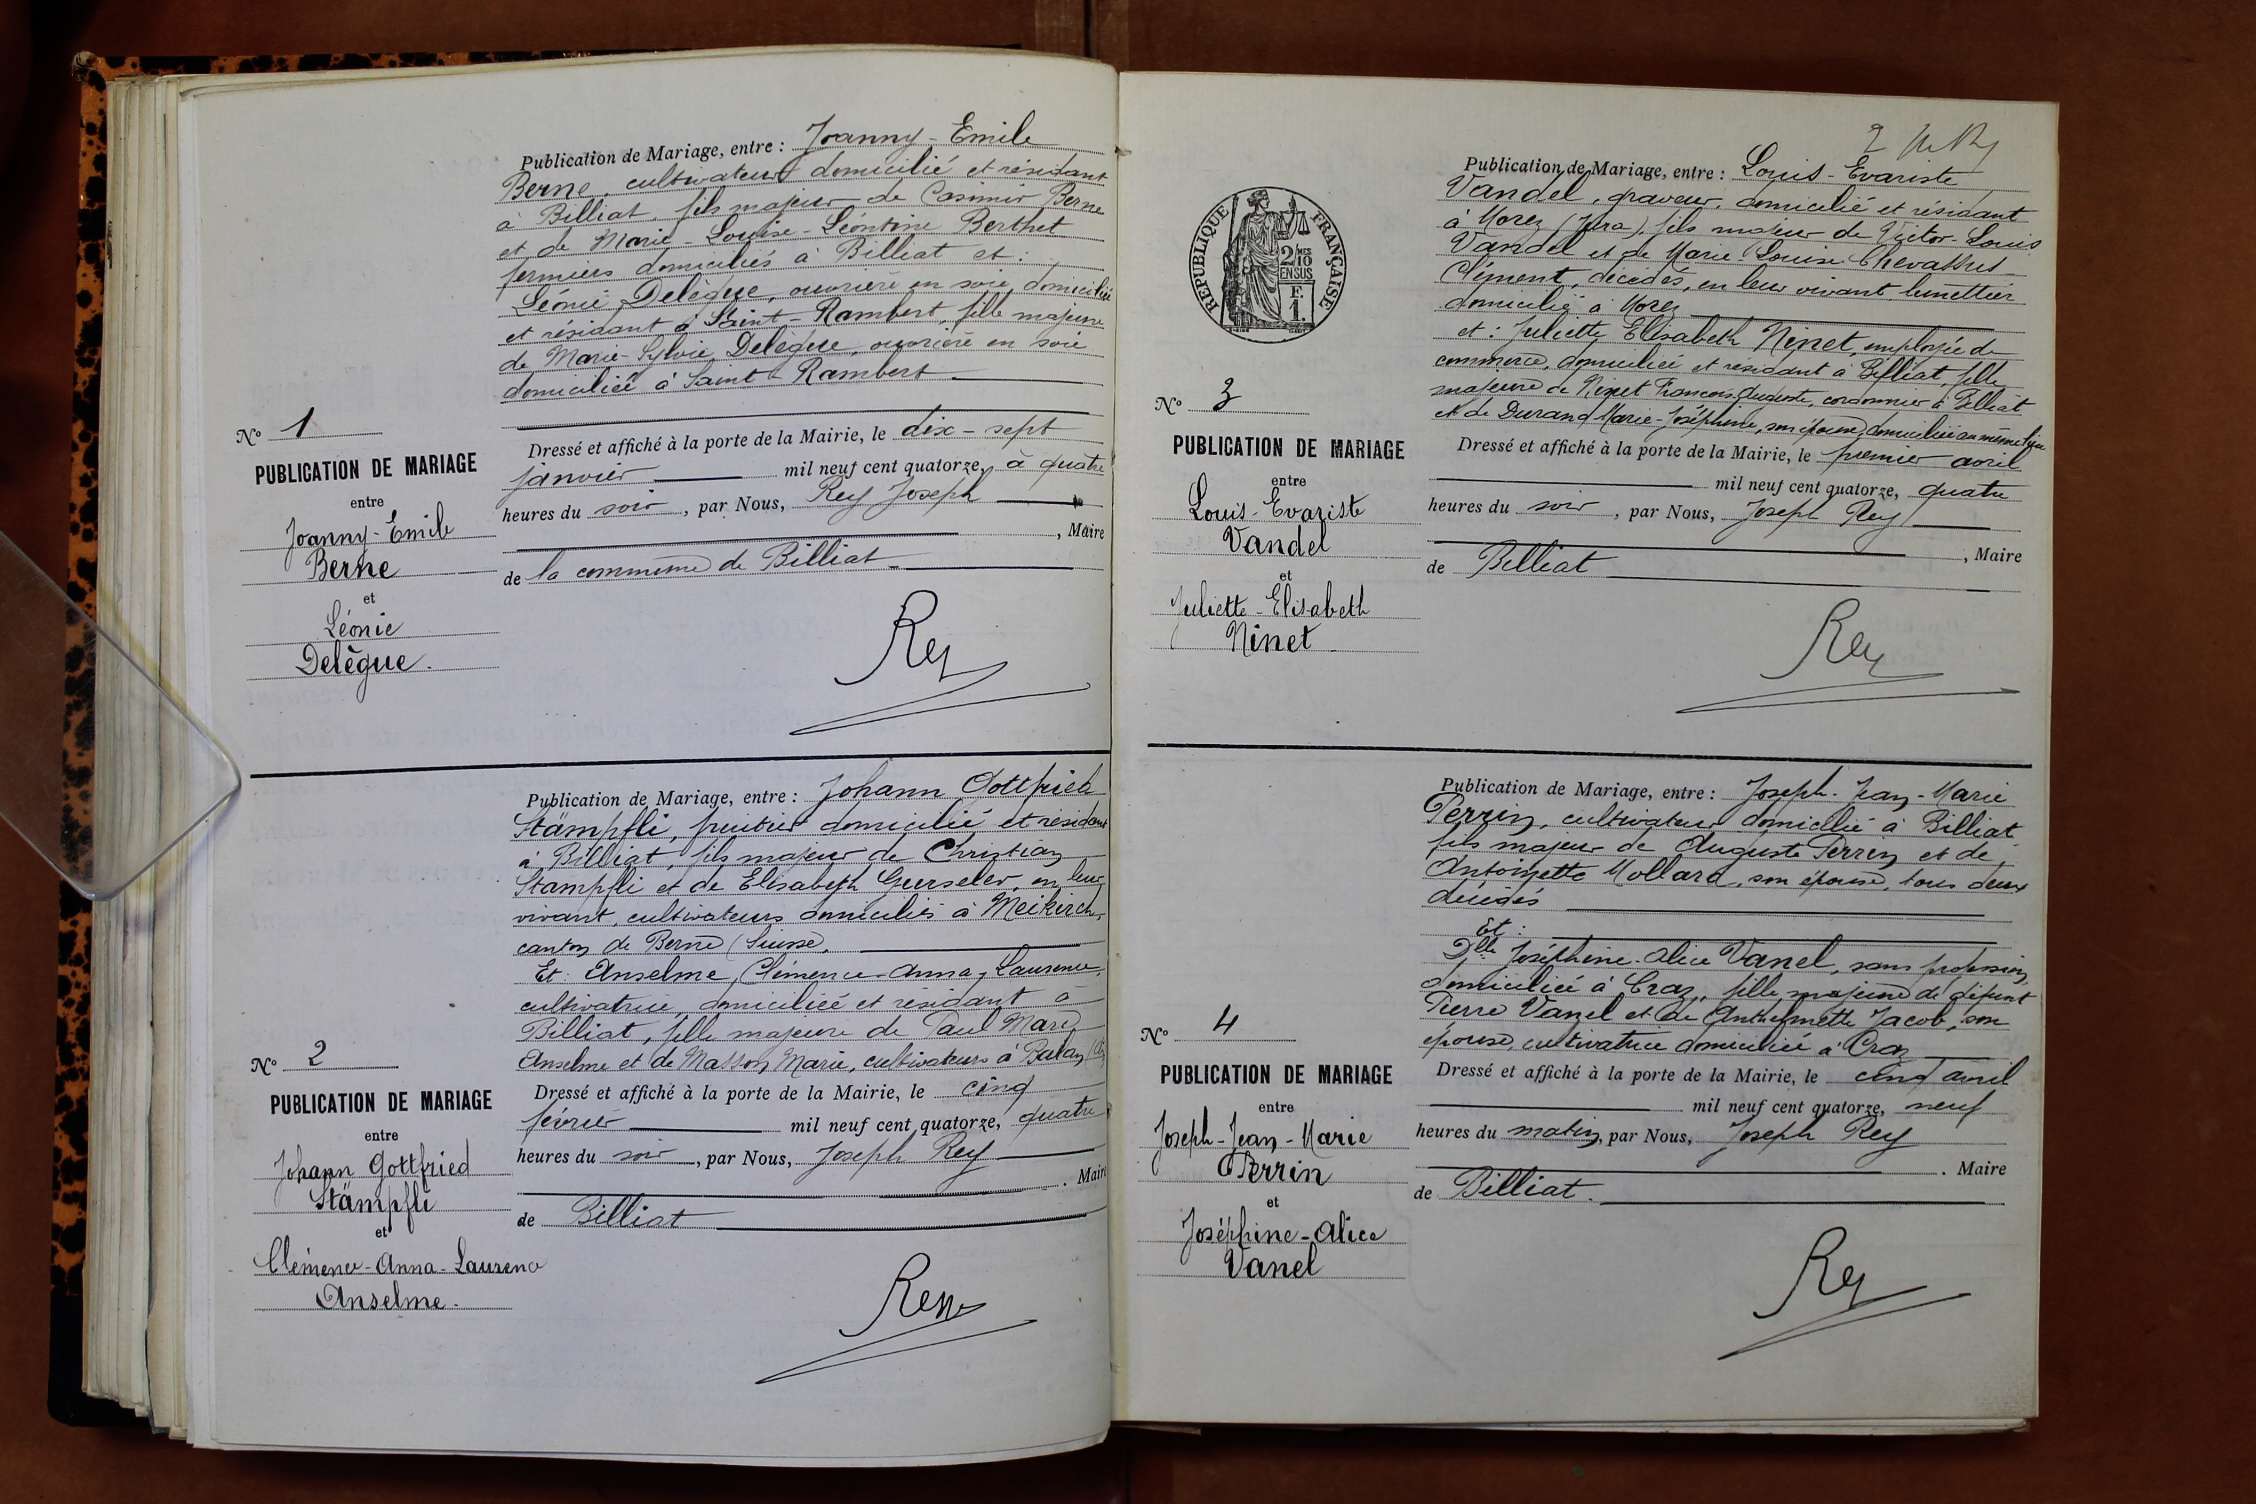 Publication de Mariage, entre : Joanny-Emile
Berne, cultivateur domicilié et résidant
à Billiat, fils majeur de Casimir Berne
et de Marie-Louise-Léontine Berthet
fermiers domiciliés à Billiat et :
Léonie Delègue, ouvrière en soie domiciliée
et résidant à Saint-Rambert, fille majeure
de Marie-Sylvie Delègue, ouvrière en soie
domiciliée à Saint-Rambert
Nº 1
PUBLICATION DE MARIAGE
entre
Joanny-Emile
Berne
et
Léonie
Delègue.
Dressé et affiché à la porte de la Mairie, le dix-sept
janvier mil neuf cent quatorze, à quatre
heures du soir, par Nous, Rey Joseph
, Maire
de la commune de Billiat
Rey
Publication de Mariage, entre : Johann Gottfried
Stämpfli, fruitier domicilié et résidant
à Billiat, fils majeur de Christian
Stämpfli et de Elisabeth, en leur
vivant, cultivateurs domiciliés à Meikirch,
canton de Berne (Suisse,
Et Anselme, Clémence-Anna-Laurence,
cultivatrice, domiciliée et résidant à
Billiat, fille majeure de Paul Marie
Anselme et de Masson Marie, cultivateurs à Balan
Nº 2
PUBLICATION DE MARIAGE
entre
Johann Gottfried
Stämpfli
et
Clémence-Anna-Laurence
Anselme.
Dressé et affiché à la porte de la Mairie, le cinq
février mil neuf cent quatorze, quatre
heures du soir, par Nous, Joseph Rey
. Maire
de Billiat
Rey
2
RÉPUBLIQUE FRANÇAISE
2/10 MES
EN SUS
F.
1.
Publication de Mariage, entre : Louis-Evariste
Vandel, graveur, domicilié et résidant
à Morez (Jura), fils majeur de Victor-Louis
Vandel et de Marie-Louise Chevassus
Clément, décédés, en leur vivant lunettier
domicilié à Morez
et : Juliette Elisabeth Ninet, employée de
commerce, domiciliée et résidant à Billiat, fille
majeure de Ninet François Auguste, cordonnier à Billiat
et de Durand Marie-Joséphine, son épouse, domiciliée au même lieu
Nº 3
PUBLICATION DE MARIAGE
entre
Louis-Evariste
Vandel
et
Juliette-Elisabeth
Ninet
Dressé et affiché à la porte de la Mairie, le premier avril
mil neuf cent quatorze, quatre
heures du soir, par Nous, Joseph Rey
, Maire
de Billiat
Rey
Publication de Mariage, entre : Joseph-Jean-Marie
Perrin, cultivateur domicilié à Billiat
fils majeur de Auguste Perrin et de
Antoinette Mollard, son épouse, tous deux
décédés
Et :
Dlle Joséphine-Alice Vanel, sans profession,
domiciliée à Craz, fille majeure de défunt
Pierre Vanel et de Anthelmette Jacob, son
épouse, cultivatrice domiciliée à Craz
Nº 4
PUBLICATION DE MARIAGE
entre
Joseph-Jean-Marie
Perrin
et
Joséphine-Alice
Vanel
Dressé et affiché à la porte de la Mairie, le cinq avril
mil neuf cent quatorze, neuf
heures du matin, par Nous, Joseph Rey
. Maire
de Billiat.
Rey